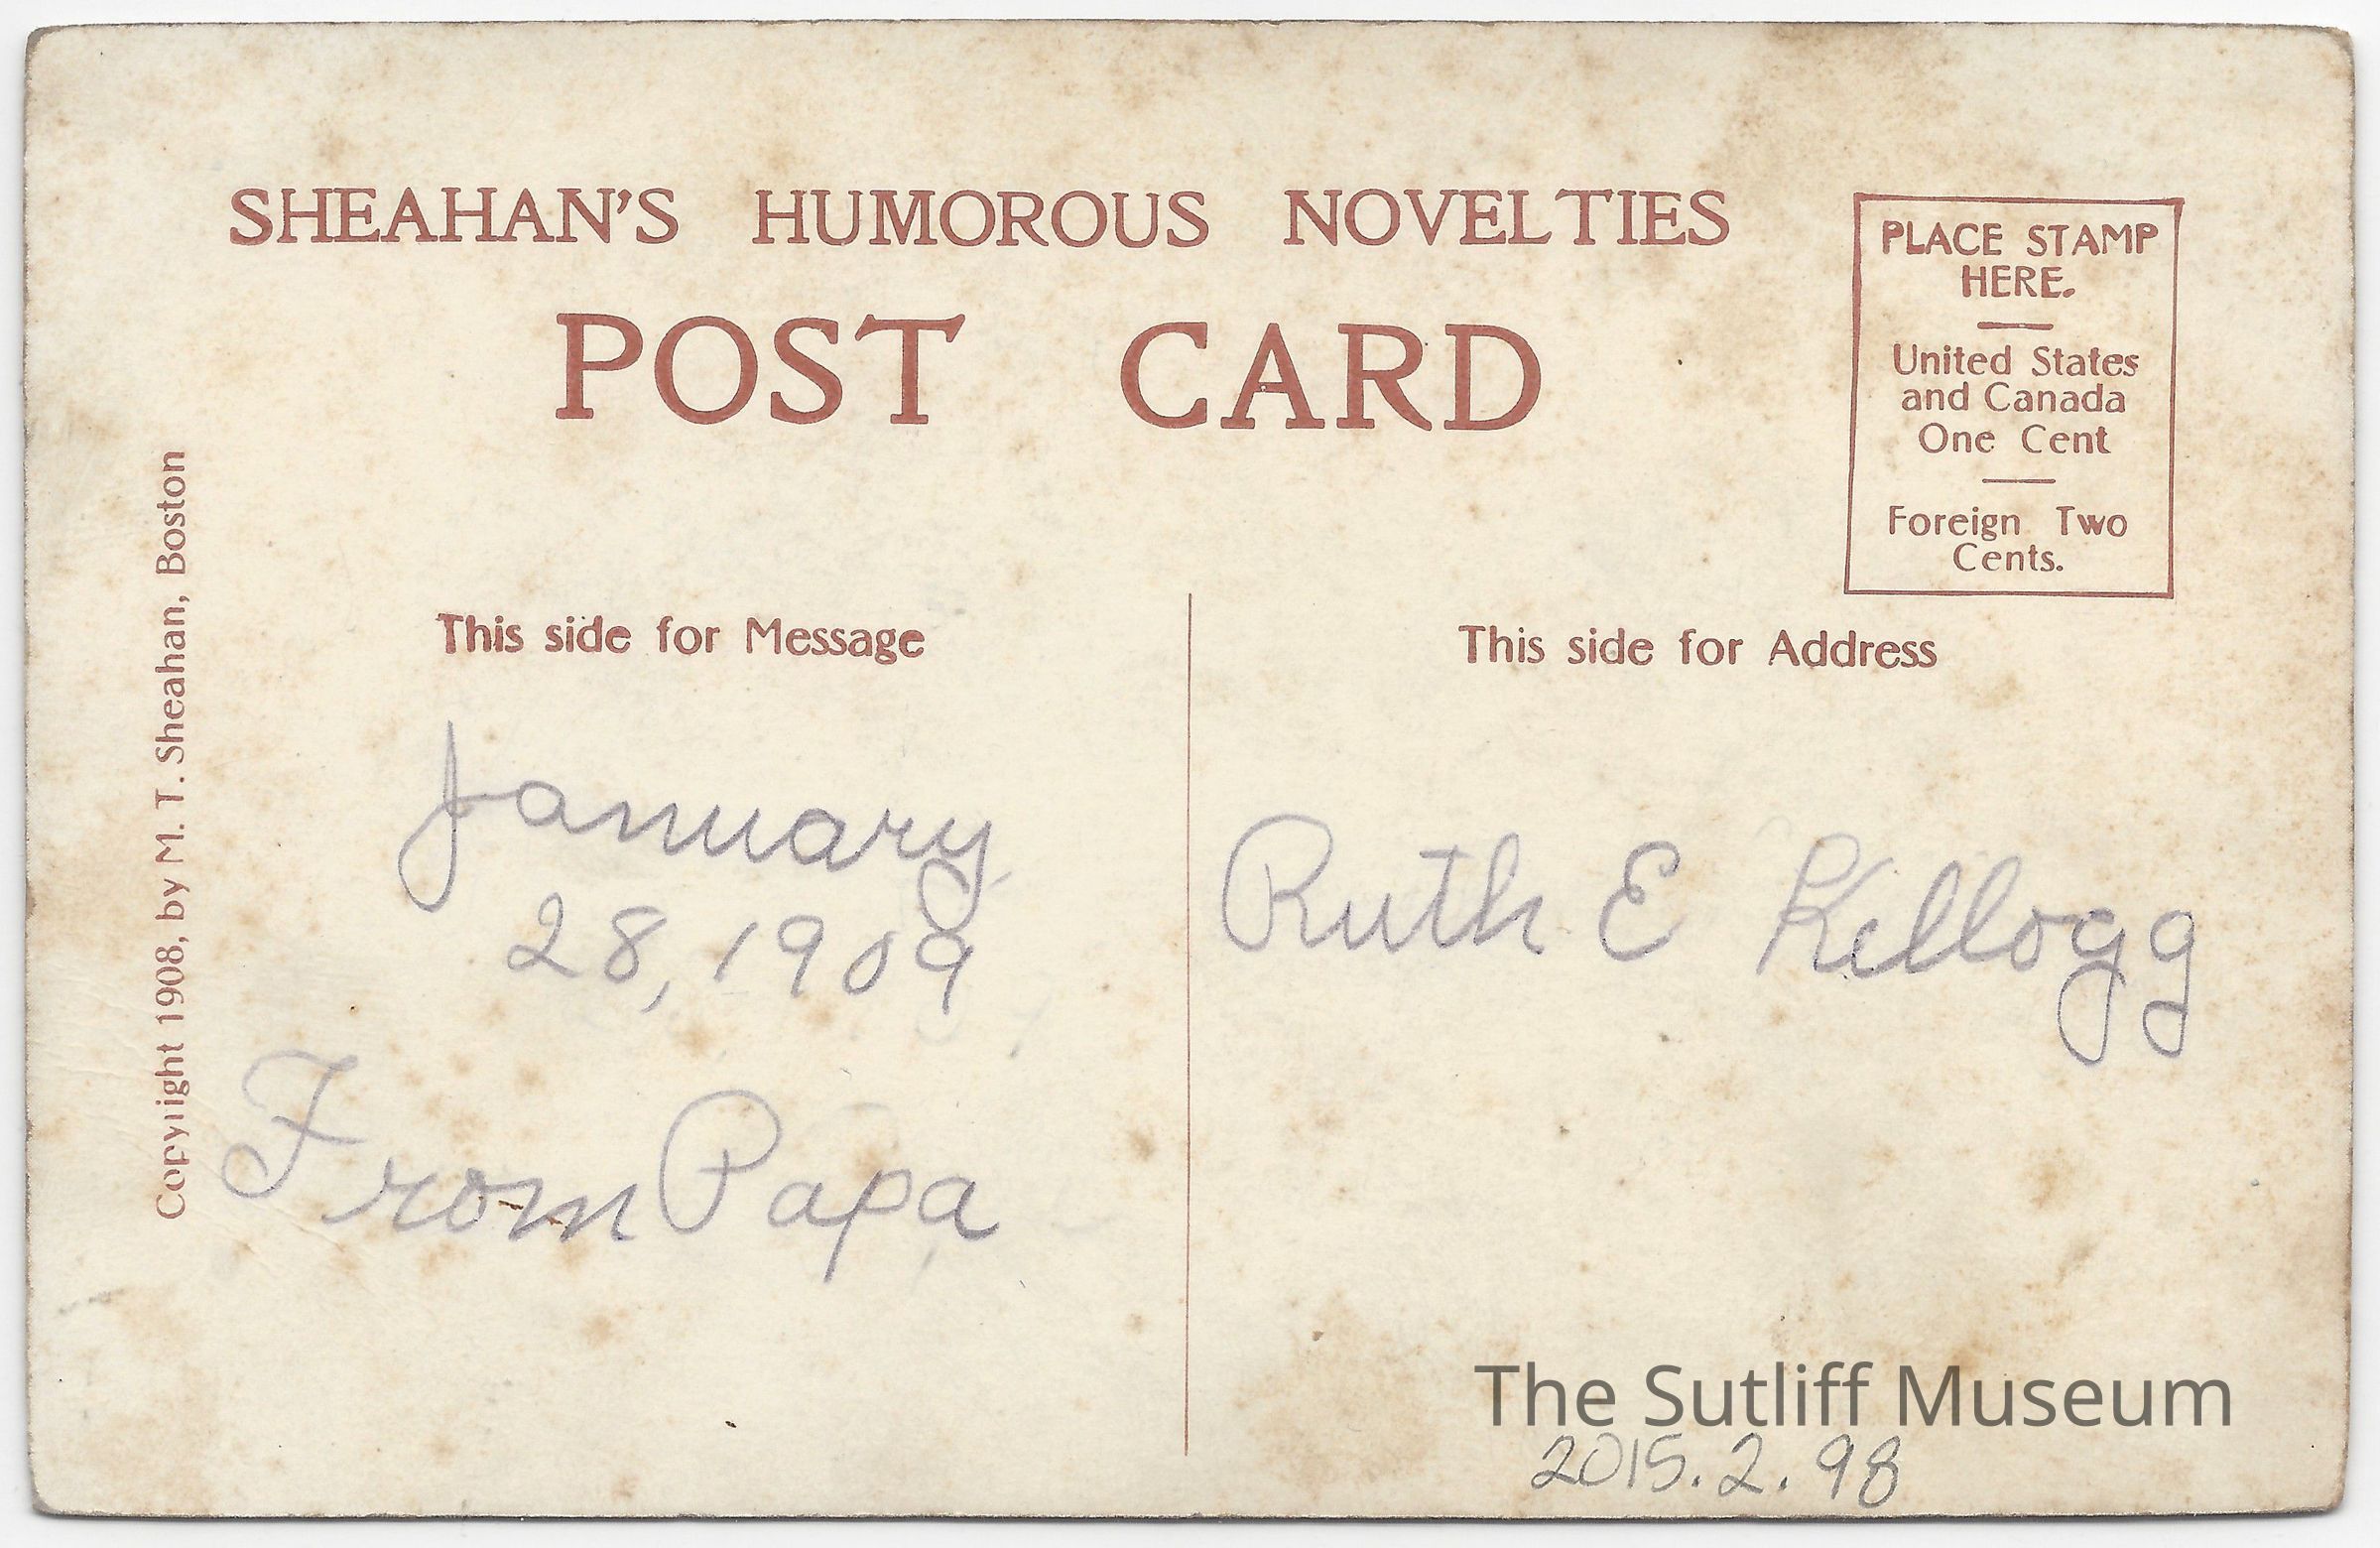 SHEAHAN'S HUMOROUS NOVELTIES
POST CARD
PLACE STAMP
HERE.
United States
and Canada
One Cent
Foreign Two
Cents.
Copyright 1908, by M. T. Sheahan, Boston
This side for Message
January
28, 1909
From Papa
This side for Address
Ruth E Kellogg
The Sutliff Museum
2015.2.98